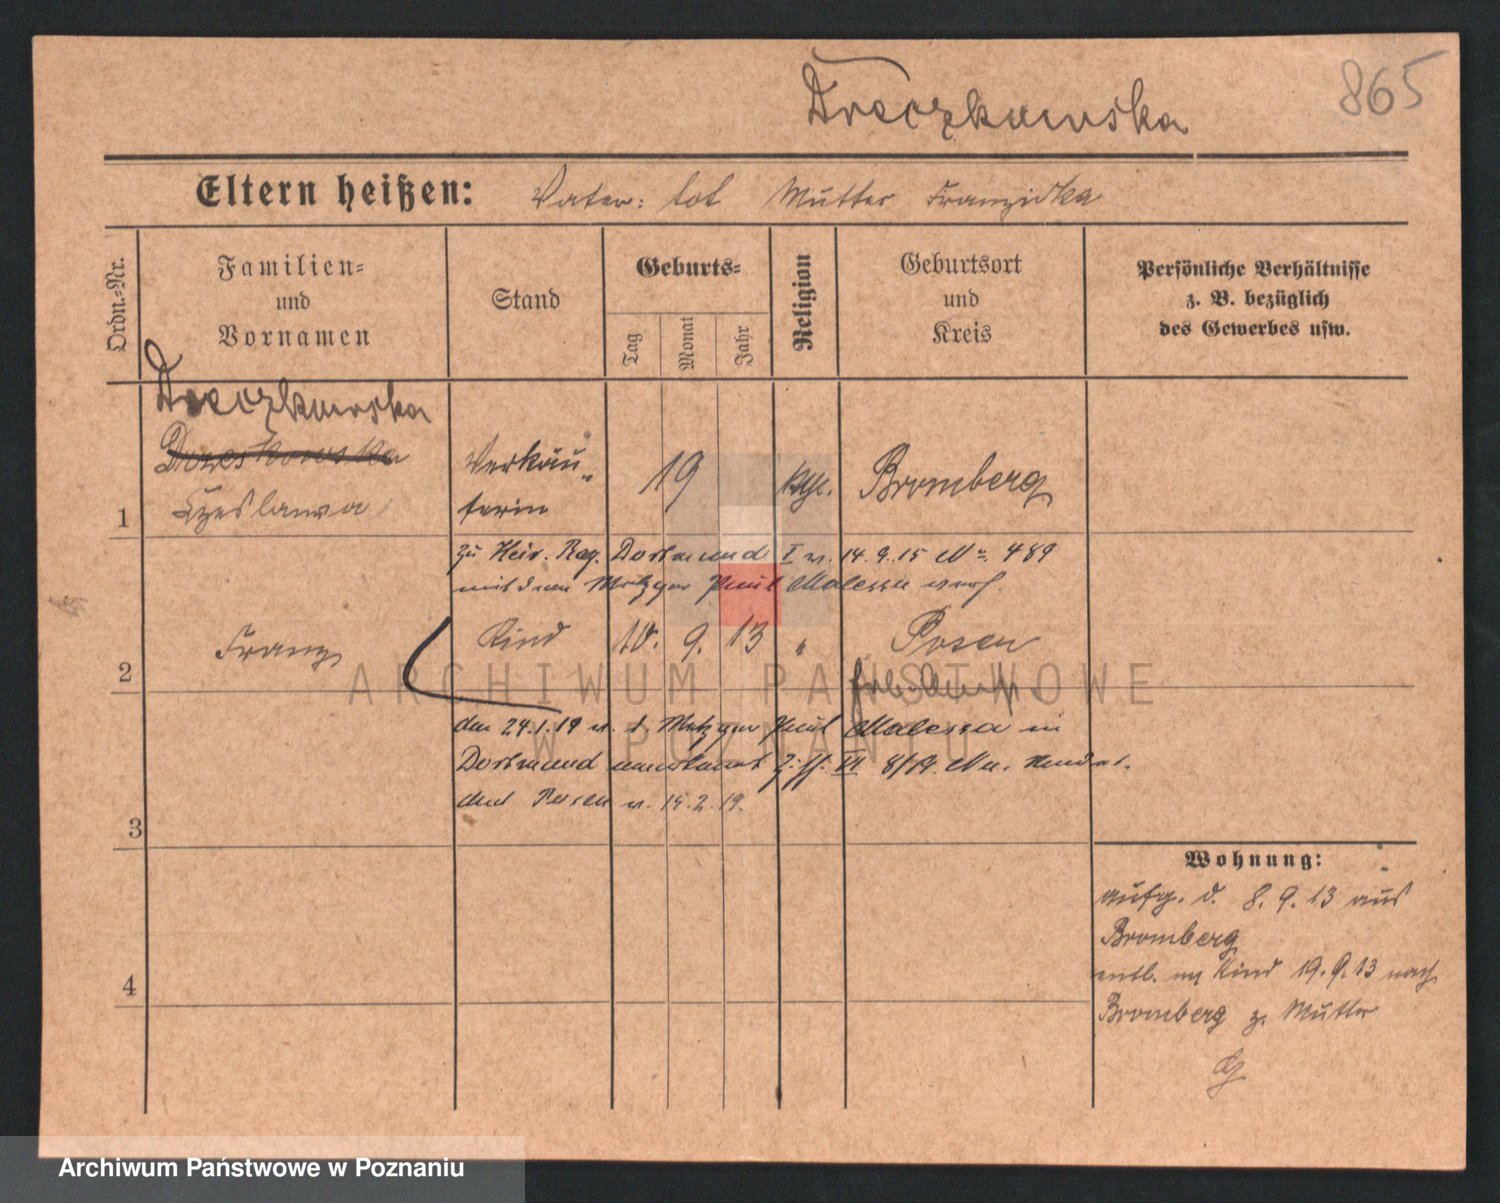 865
Droczkowska
Eltern heißen: Vater: tot Mutter Franziska
Ordn.-Nr.
Familien-
und
Vornamen
Stand
Geburts-
Tag
Monat
Jahr
Religion
Geburtsort
und
Kreis
Persönliche Verhältnisse
z. B. bezüglich
des Gewerbes usw.
Droczkowska
Czeslawa
1
Verkäu-
ferin
19
kath.
Bromberg
zu Heir. Reg. Dortmund I v. 14.9.15 No. 489
mit dem Metzger Paul Malessa verh.
2
Franz
Kind
10. 9. 13
"
Posen
den 24.1.19 v. d. Metzger Paul Malessa in
Dortmund anerkannt
Posen v. 15.2.19.
3
4
Wohnung:
aufg. d. 8.9.13 aus
Bromberg
entl. m Kind 19.9.13 nach
Bromberg z. Mutter
ARCHIWUM PAŃSTWOWE
W POZNANIU
Archiwum Państwowe w Poznaniu